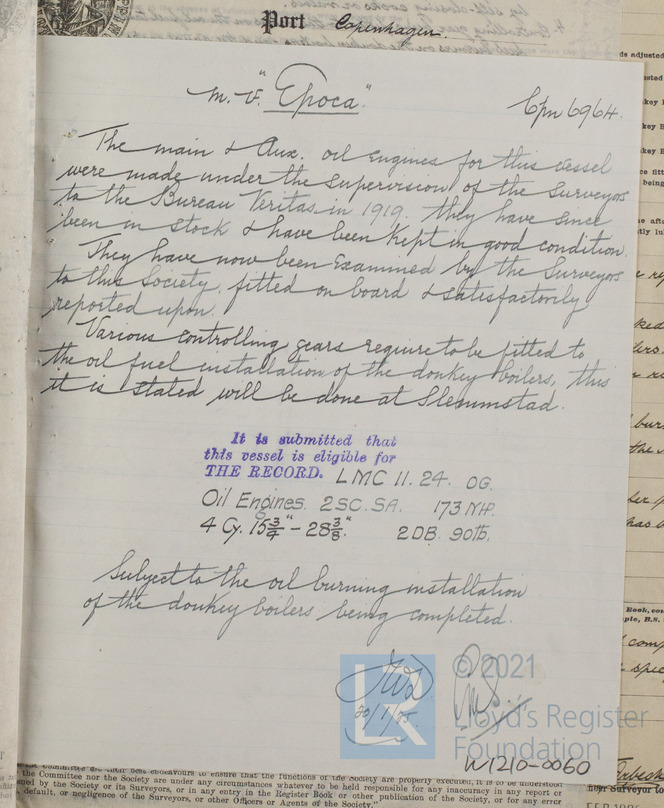 Port Copenhagen.
m.v. "Epoca"
Cpn 6964.
The main & Aux. oil engines for this vessel
were made under the supervision of the Surveyors
to the Bureau Veritas in 1919. they have since
been in stock & have been kept in good condition.
They have now been examined by the Surveyors
to this Society, fitted on board & satisfactorily
reported upon.
Various controlling gears require to be fitted to
the oil fuel installation of the donkey boilers, this
it is stated will be done at
It is submitted that
this vessel is eligible for
THE RECORD. LMC 11. 24. OG.
Oil Engines. 2SC. SA. 173 NHP.
4 Cy. 15¾" – 28⅜". 2DB. 90 lb.
Subject to the oil burning installation
of the donkey boilers being completed.
30/1/25.
LR
© 2021
Lloyd's Register
Foundation
W1210-0060
the Committee nor the Society are under any circumstances whatever to be held responsible for any inaccuracy in any report or
ued by the Society or its Surveyors, or in any entry in the Register Book or other publication of the Society, or for any error
, default, or negligence of the Surveyors, or other Officers or Agents of the Society."